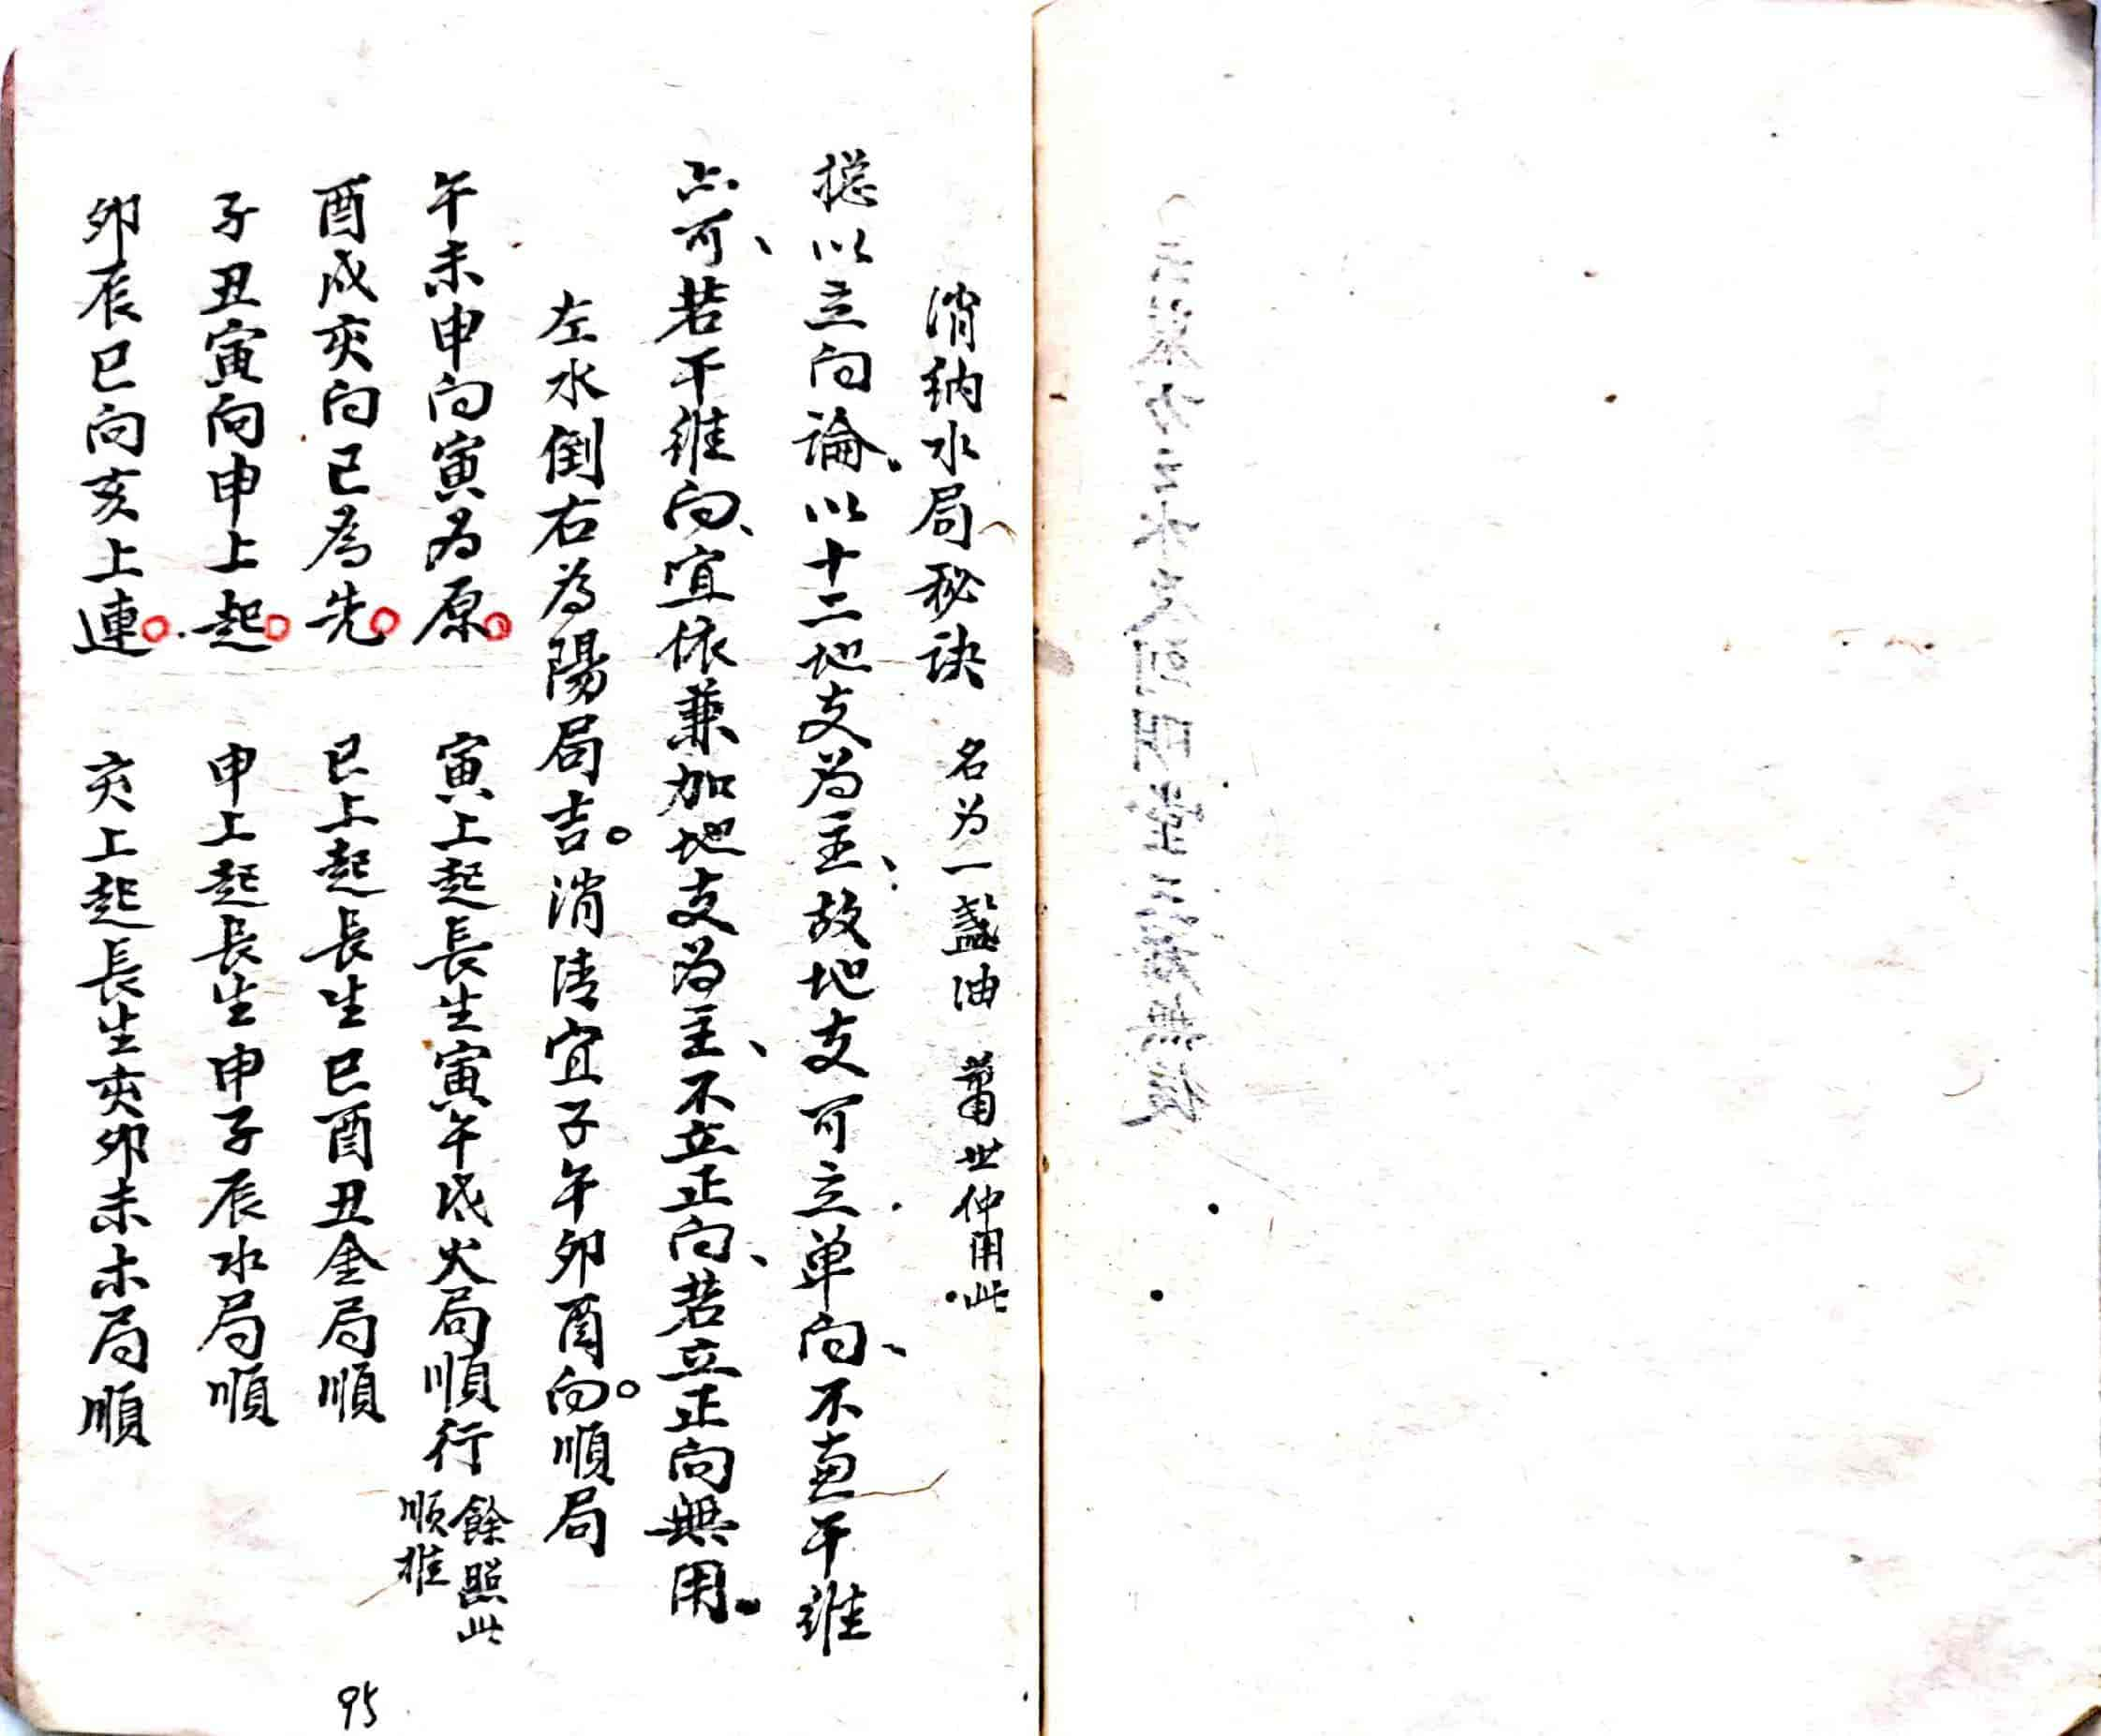 消納水局秘訣 名为一盞油 蕭世仲用此
摠以立向論、以十二地支为主、故地支可立单向、不兼干維
亦可、若干維向、宜依兼加地支为主、不立正向、若立正向無用。
左水倒右为陽局吉。消清宜子午卯酉向。順局
午未申向寅为原。 寅上起長生寅午戌火局順行 餘照此順推
酉戌亥向巳為先。 巳上起長生巳酉丑金局順
子丑寅向申上起。 申上起長生申子辰水局順
卯辰巳向亥上連。 亥上起長生亥卯未木局順
95